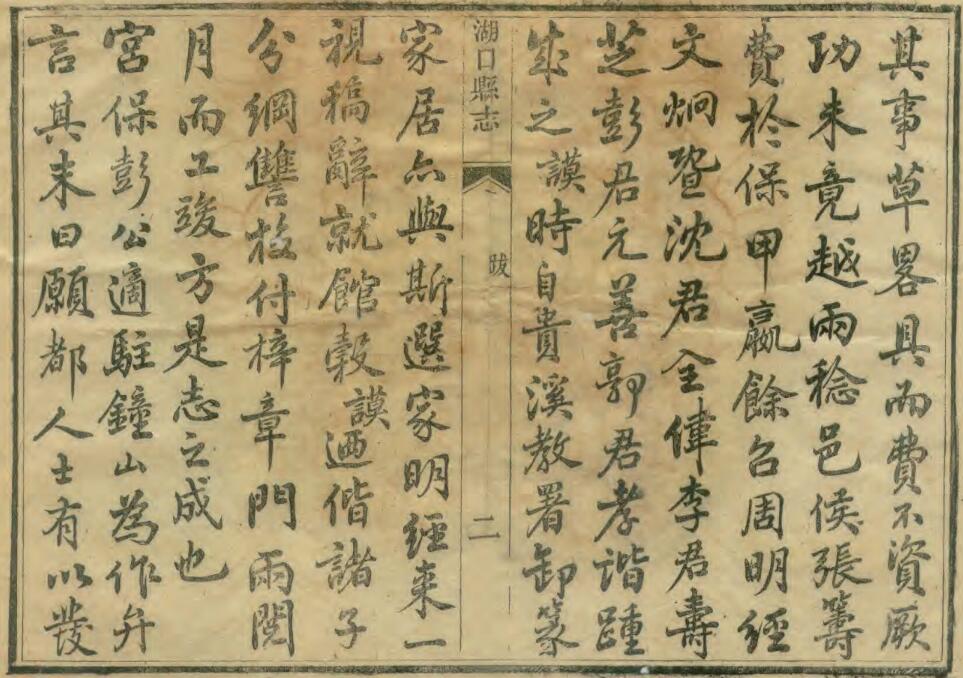 其事草畧具而費不資厥
功未竟越兩稔邑侯張籌
費於保甲贏餘召周明經
文炯暨沈君全偉李君壽
芝彭君元善郭君孝諧踵
成之謨時自貴溪教署卸篆
湖口縣志
跋
二
家居亦與斯選家明經来一
視稿辭就館穀謨迺偕諸子
分綱讐校付梓章門兩閱
月而工竣方是志之成也
宮保彭公適駐鐘山為作弁
言其末曰願都人士有以發